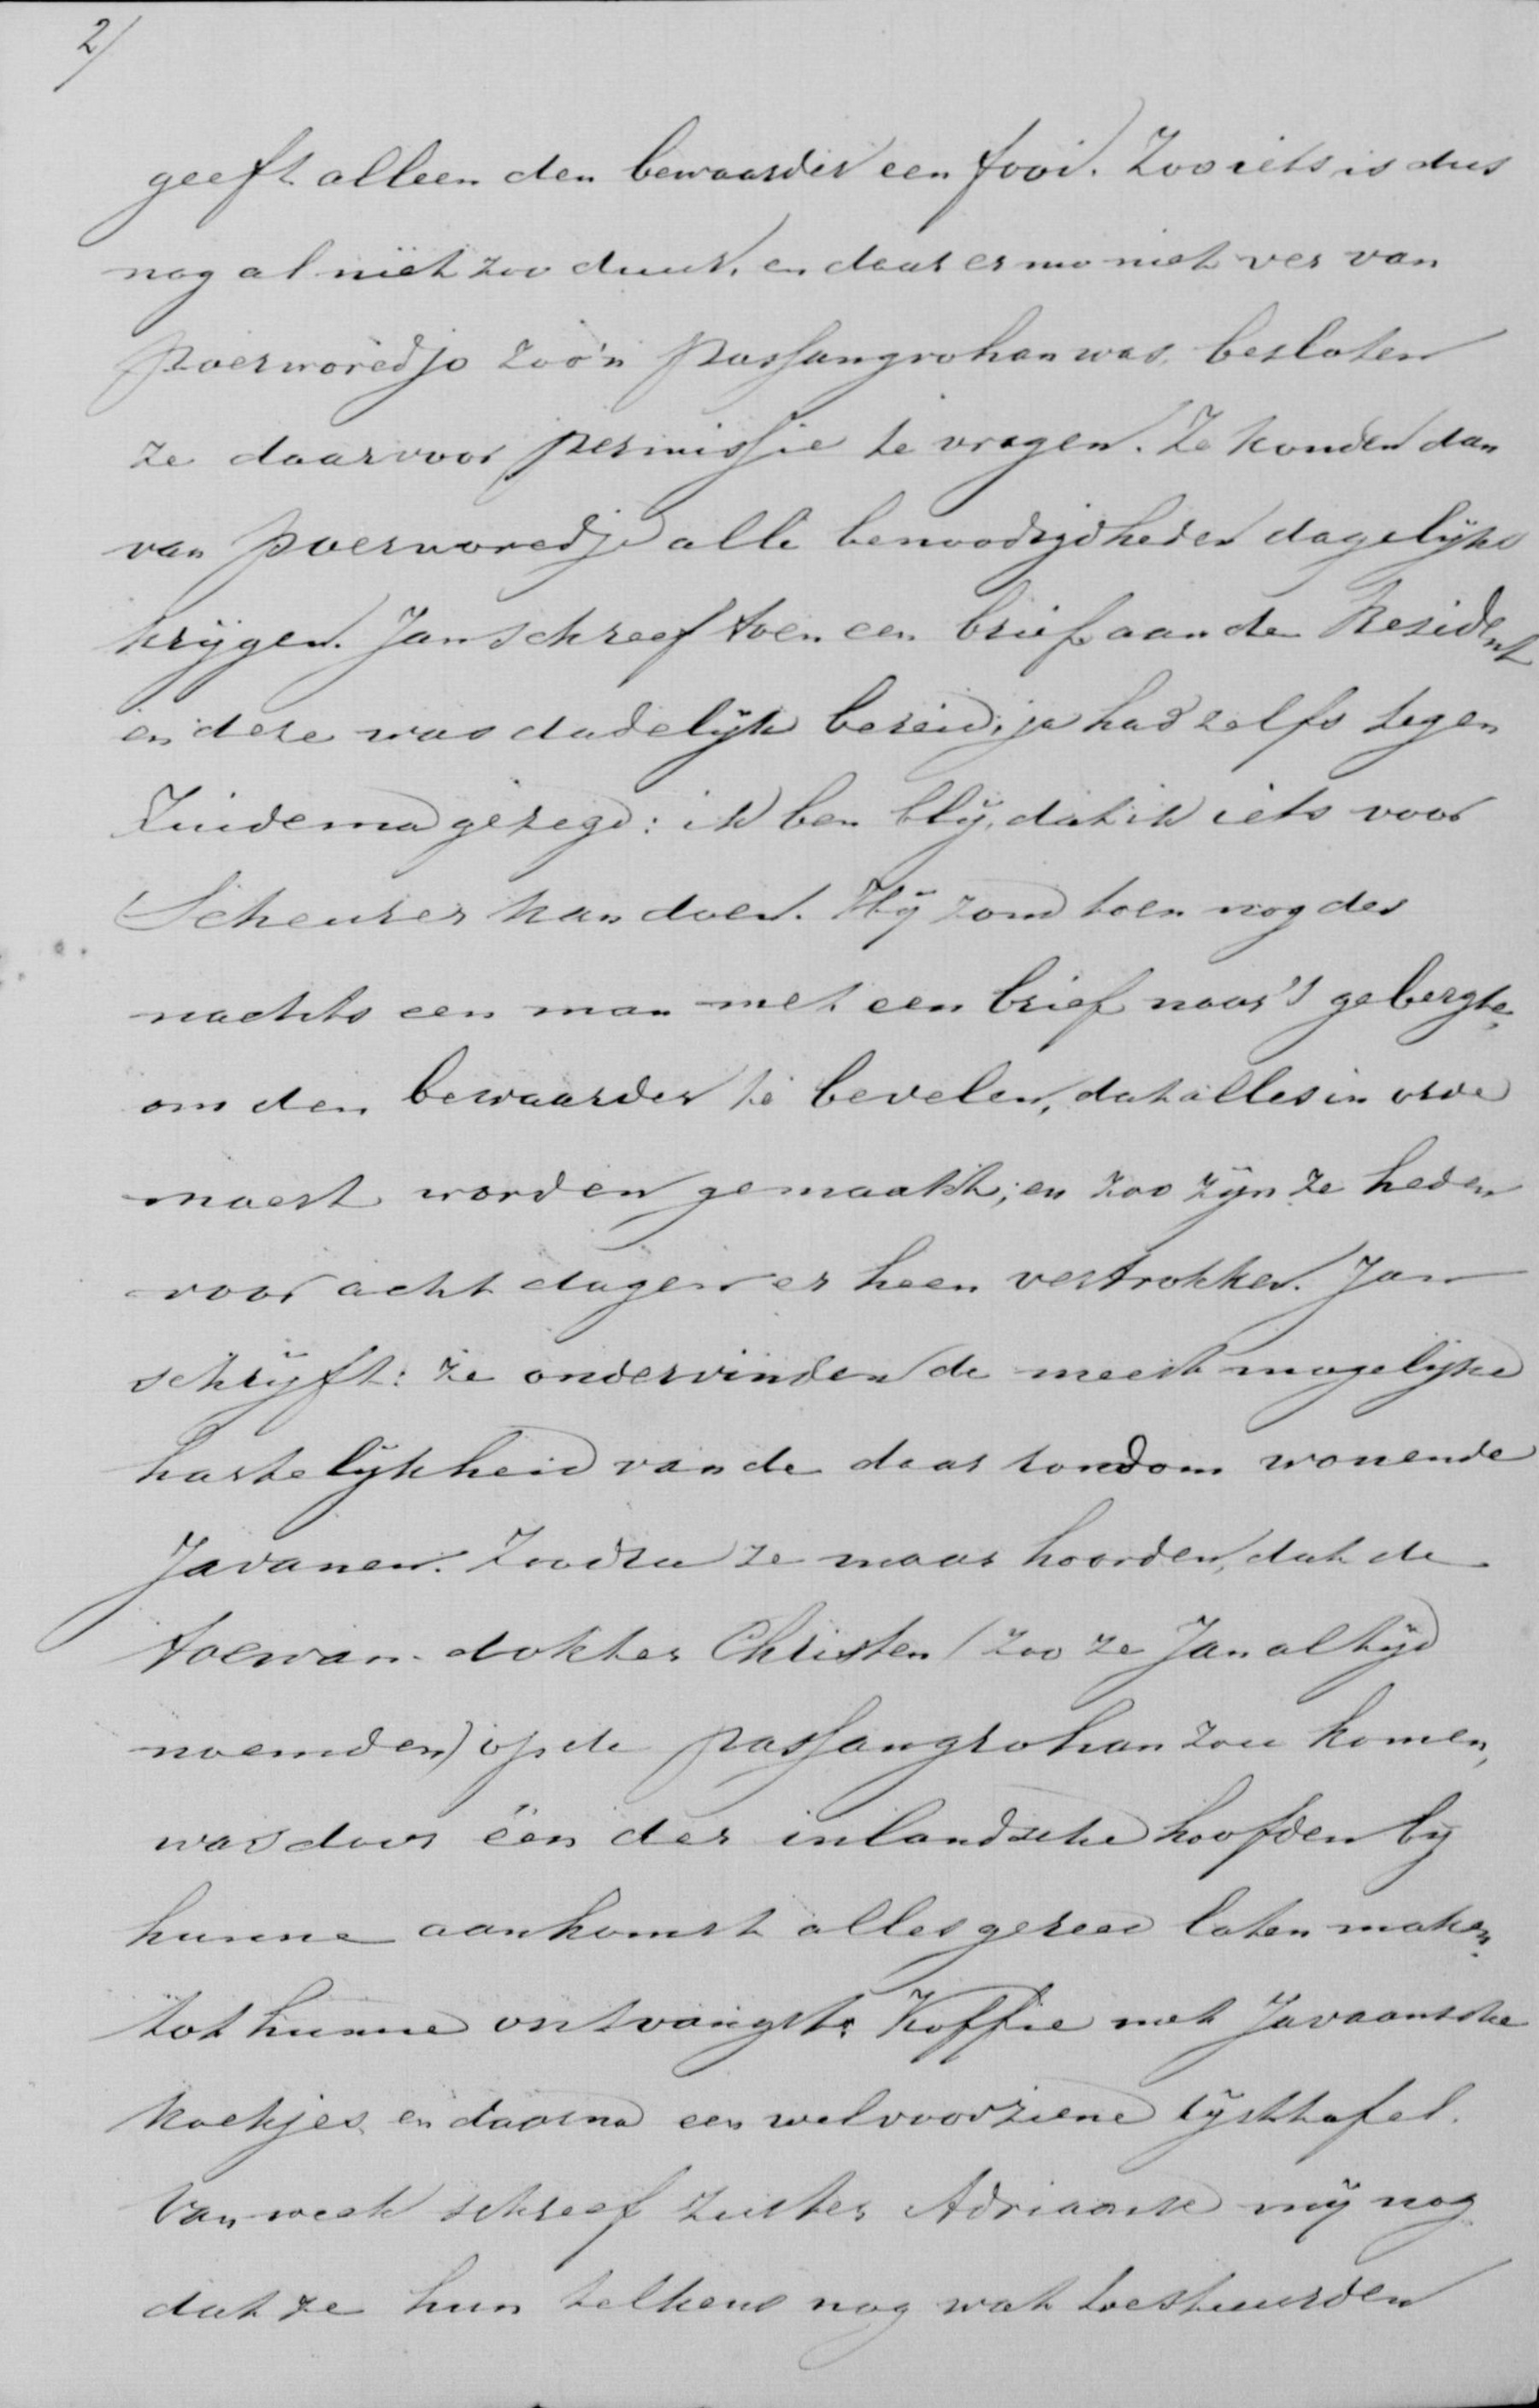 2/
geeft alleen den bewaarder een fooi. Zoo iets is dus
nog al niet zoo duur, en daar er nu niet ver van
Poerworedjo zoo'n passangrohan was, besloten
ze daarvoor permissie te vragen. Ze konden dan
van Poerworedjo alle benoodigdheden dagelyks
krygen. Jan schreef toen een brief aan den Resident
en deze was dadelyk bereid, ja had zelfs tegen
Zuidema gezegd: ik ben bly, dat ik iets voor
Scheurer kan doen. Hy zond toen nog des
nachts een man met een brief naar 't gebergte,
om den bewaarder te bevelen, dat alles in orde
moest worden gemaakt; en zoo zyn ze heden
voor acht dagen er heen vertrokken. Jan
schryft: ze ondervinden de meest mogelyke
hartelykheid van de daar rondom wonende
Javanen. Zoodra ze maar hoorden, dat de
toewan-dokter Christen (zoo ze Jan altyd
noemden) op de passangrohan zou komen,
was door één der inlandsche hoofden by
hunne aankomst alles gereed laten maken
tot hunne ontvangst: Koffie met Javaansche
koekjes en daarna een welvoorziene rysttafel.
Van week schreef zuster Adriaanse my nog
dat ze hun telkens nog wat toestuurden